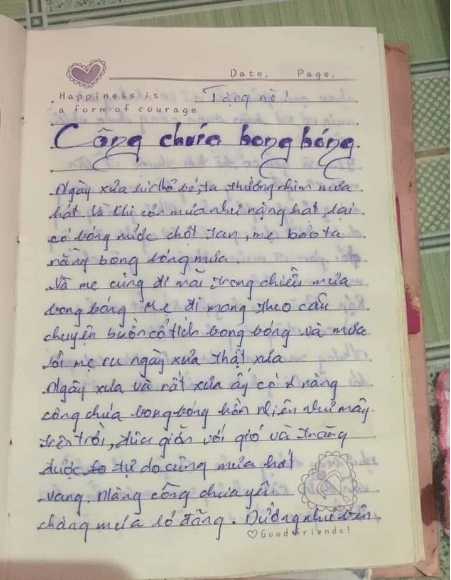 Date. Page.
Happiness is
a form of courage
Tặng mẹ!
Công chúa bong bóng.
Ngày xưa lúc nhỏ bé, ta thường nhìn mưa
hát. Và khi cơn mưa như nặng hạt, lại
có bóng nước chợt tan, mẹ bảo ta
rằng bong bóng mưa.
Và mẹ cũng đi mãi trong chiều mưa
bong bóng. Mẹ đi mang theo câu
chuyện buồn cổ tích bong bóng và mưa
lời mẹ ru ngày xưa thật xưa
Ngày xưa và rất xưa ấy có nàng
công chúa bong bóng hồn nhiên như mây
trên trời, đùa giỡn với gió và trăng
được tự do cùng mưa hát
vang. Nàng công chúa yêu
chàng mưa lơ đãng. Dường như vẫn
Good friends!